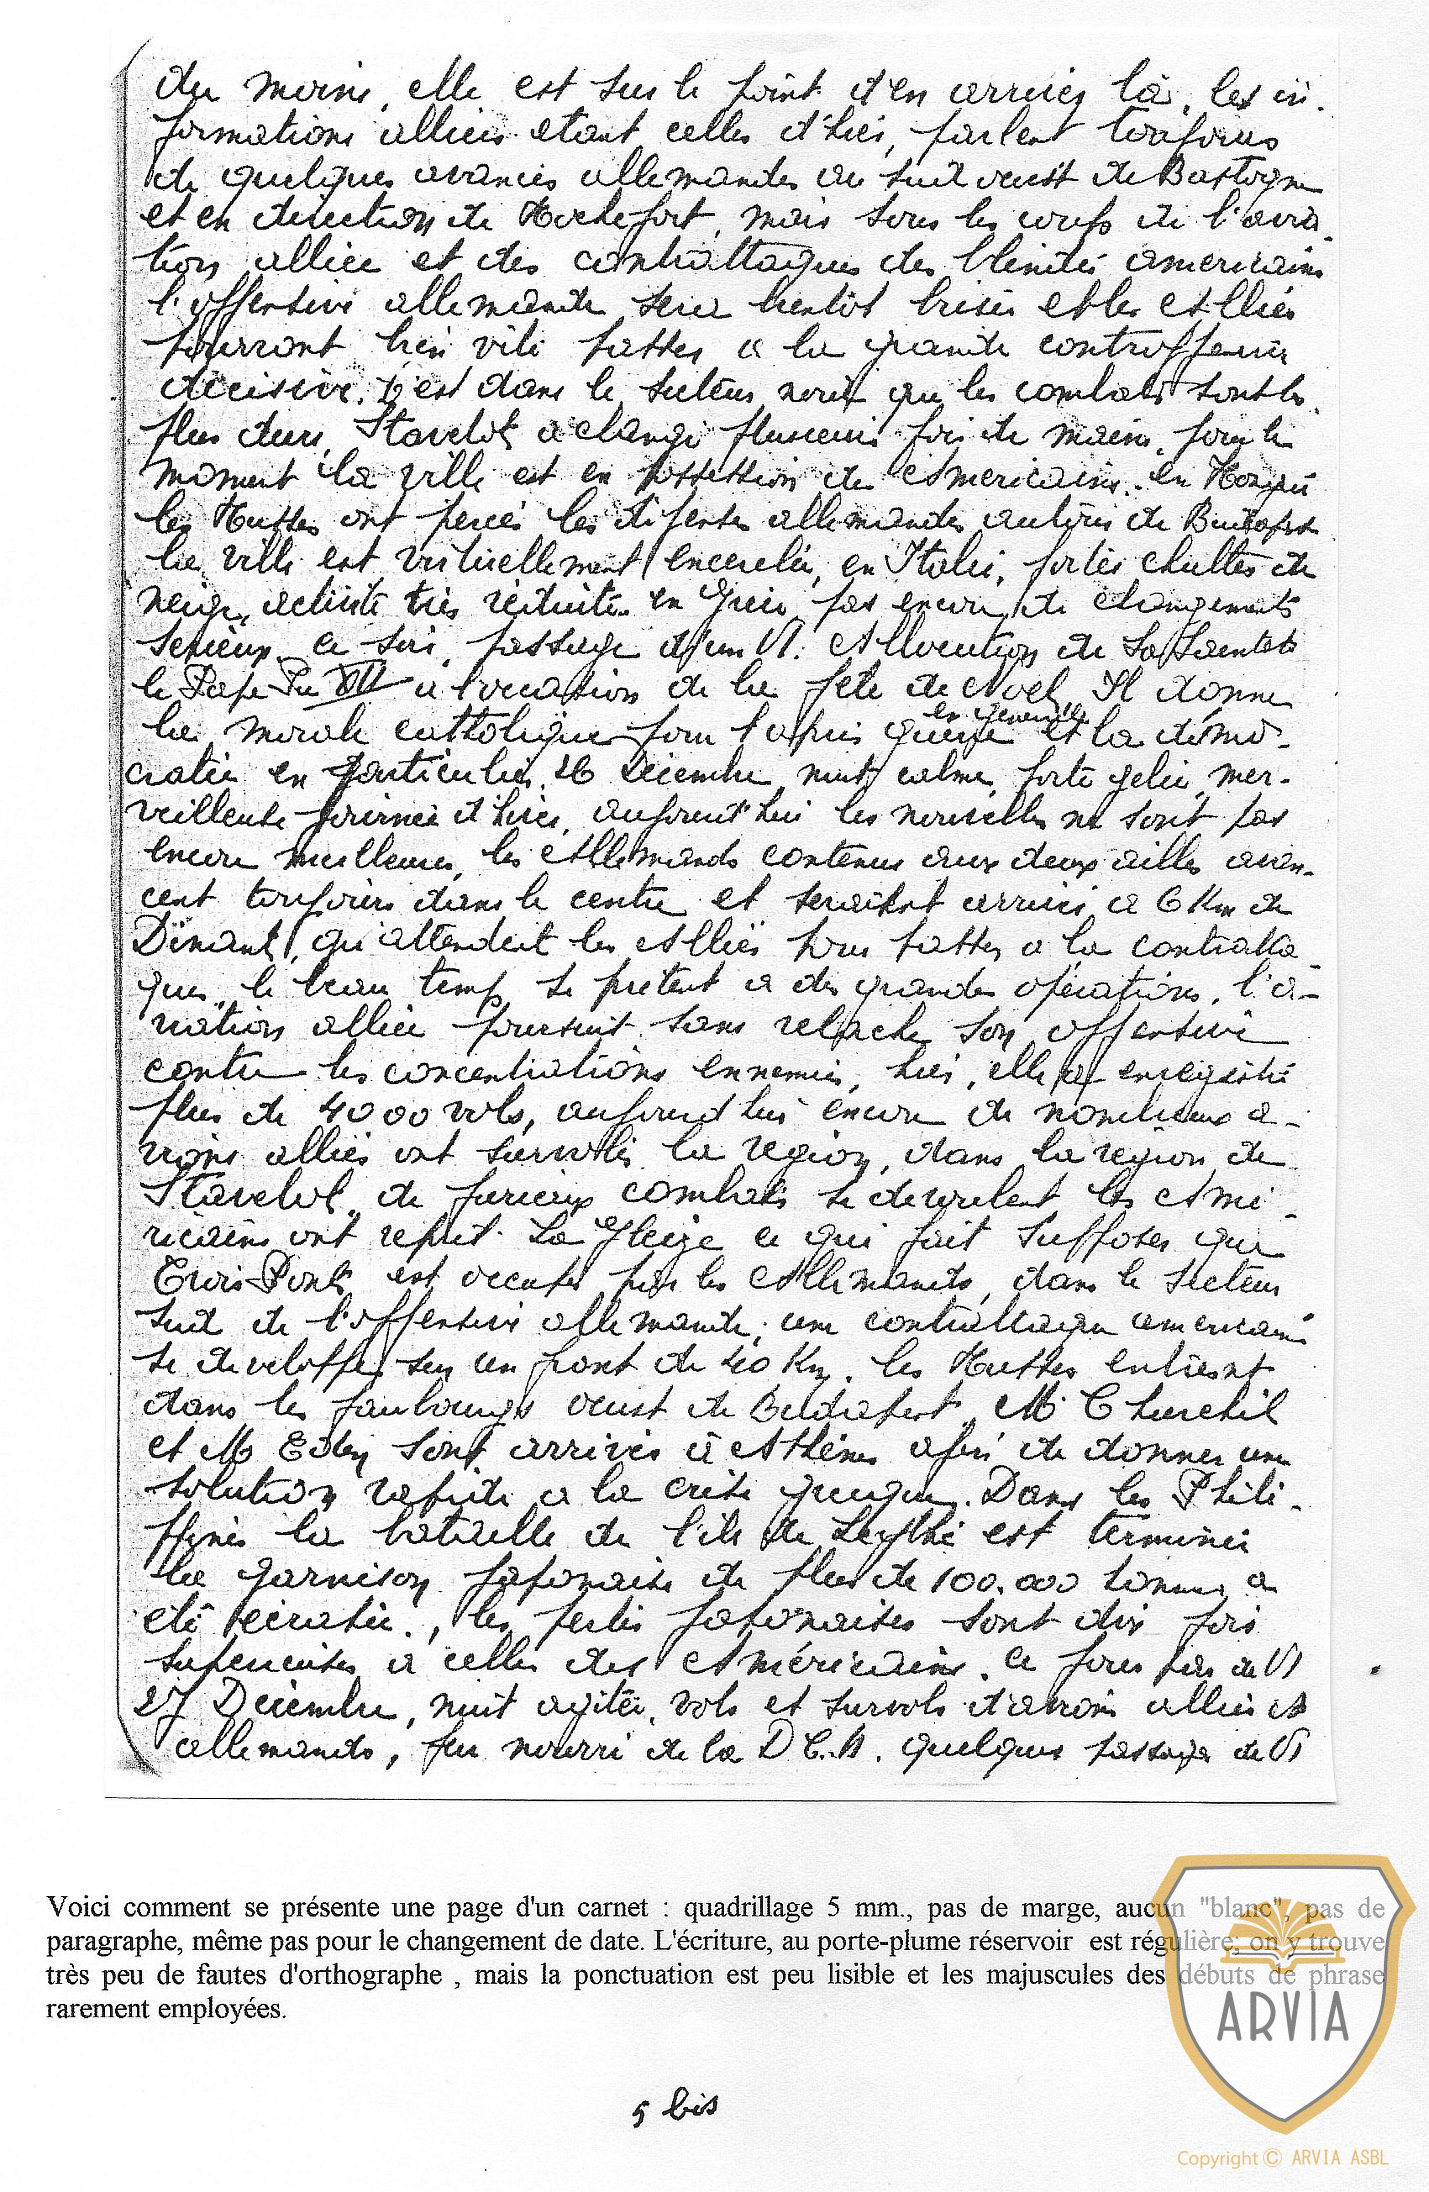 du moins, elle est sur le point d'en arriver là. les in-
formations alliées etant celles d'hier, parlent toujours
de quelques avances allemandes au sud ouest de Bastogne
et en direction de Rochefort, mais sous les coups de l'avia-
tion alliée et des contrattaques des blindés americains
l'offensive allemande sera bientôt brisée et les Alliés
pourront bien vite passer a la grande controffensive
décisive. C'est dans le secteur nord que les combats sont les
plus durs, Stavelot a changé plusieurs fois de mains, pour le
moment la ville est en possession des Americains. en Hongrie
les Russes ont percés les défenses allemandes autour de Budapest
la ville est virtuellement encerclée, en Italie, fortes chuttes de
neige, activité très réduite. en Grèce pas encore de changements
serieux. ce soir, passage d'un V1. Allocution de Sa Sainteté
le Pape Pie XII a l'occasion de la fête de Noel. Il donne
la morale catholique pour l'après guerre en general et la démo-
cratie en particulier. 26 Décembre, nuit calme, forte gelée, mer-
veilleuse journée d'hiver, aujourd'hui les nouvelles ne sont pas
encore meilleures, les Allemands contenus aux deux ailles avan-
cent toujours dans le centre et seraient arrivés a 6 Km de
Dinant, qu'attendent les Alliés pour passer a la contratta-
que, le beau temps se prêtent a des grandes opérations. l'a-
viation alliée poursuit sans relache son offensive
contre les concentrations ennemies, hier, elle a enregistré
plus de 4000 vols, aujourd'hui encore de nombreux a-
vions alliés ont survolés la region, dans la region de
Stavelot de furieux combats se deroulent les Amé-
ricains ont reprit La Gleize ce qui fait supposer que
Trois-Ponts est occupé par les Allemands, dans le secteur
sud de l'offensive allemande, une contrattaque americaine
se developpe sur un front de 40 Km. les Russes entrent
dans les faubourgs ouest de Budapest. Mr Churchil
et Mr Eden sont arrivés à Athènes afin de donner une
solution rapide a la crise grecque. Dans les Phili-
ppines la bataille de l'ile de Leythe est terminée
la garnison japonaise de plus de 100.000 hommes a
eté ecrasée, les pertes japonaises sont dix fois
superieures a celles des Américains. ce jour pas de V1
27 Decembre, nuit agitée, vols et survols d'avions alliés et
allemands, feu nourri de la D.C.A. quelques passages de V1
Voici comment se présente une page d'un carnet : quadrillage 5 mm., pas de marge, aucun "blanc", pas de
paragraphe, même pas pour le changement de date. L'écriture, au porte-plume réservoir est régulière, on y trouve
très peu de fautes d'orthographe , mais la ponctuation est peu lisible et les majuscules des débuts de phrase
rarement employées.
ARVIA
5 bis
Copyright © ARVIA ASBL